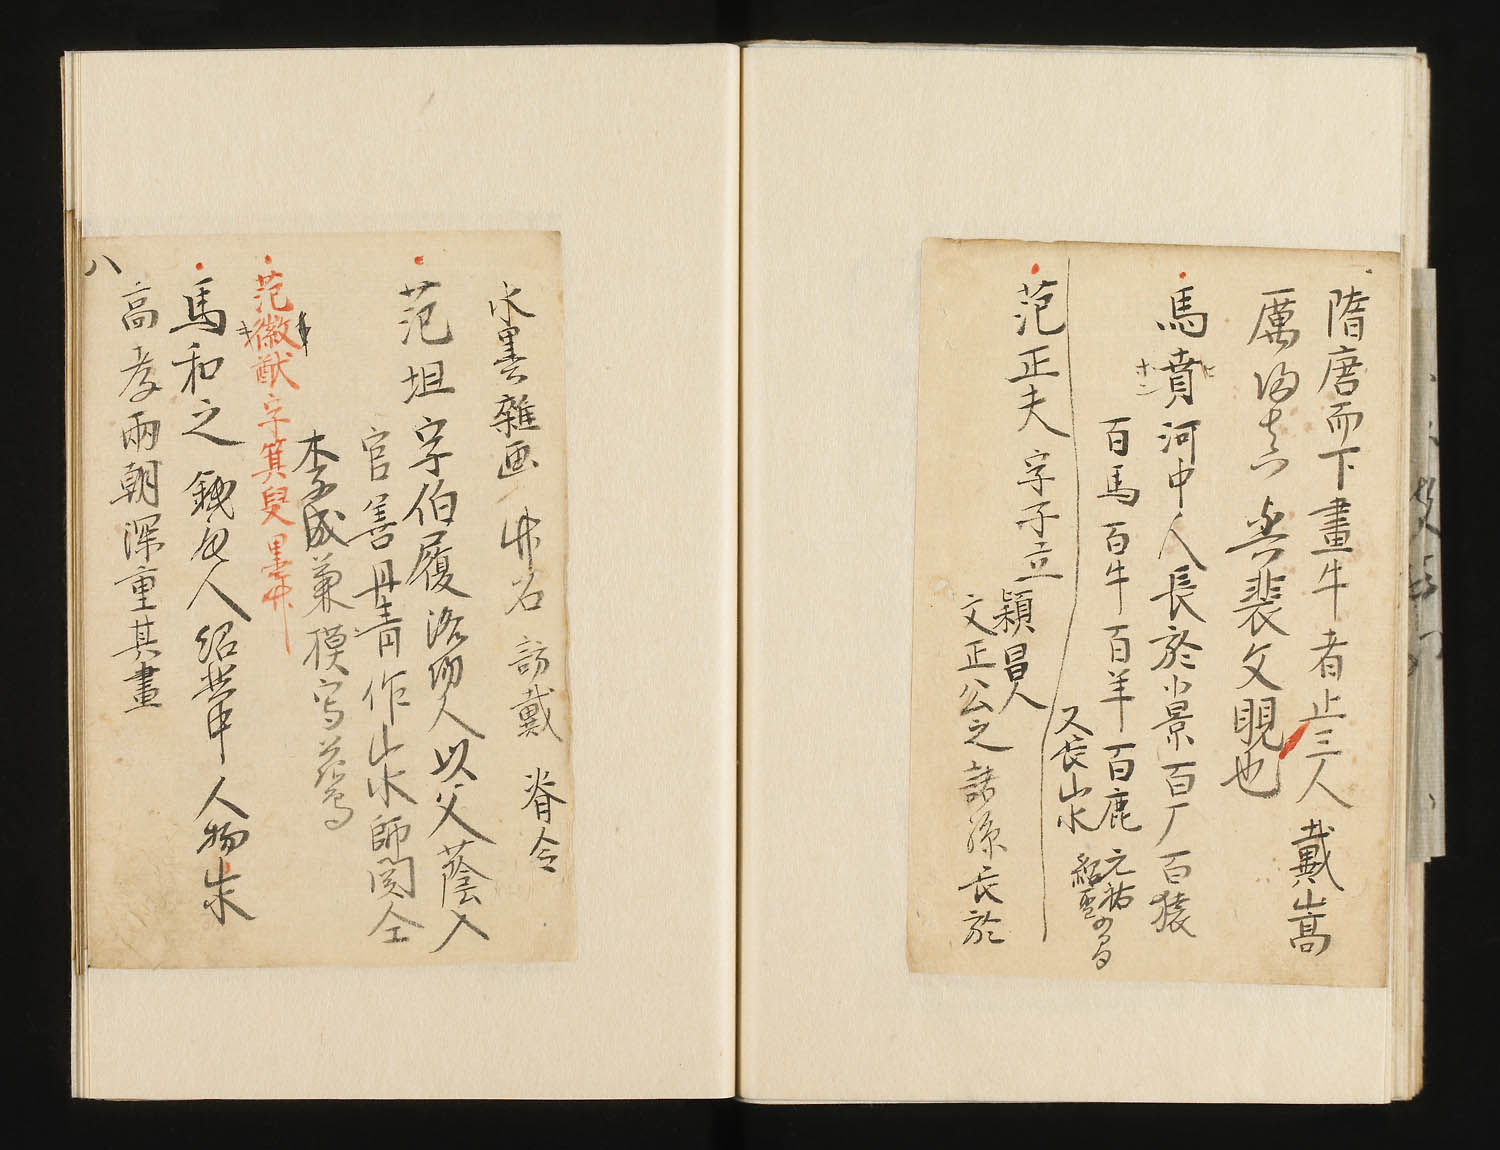 隋唐而下畫牛者止三人 戴嵩
厲 裴文睍也
馬賁河中人長於小景百厂百猿
百馬百牛百羊百鹿 元祐
紹聖
又長山水
范正夫 字子立 穎昌人
文正公之諸孫長於
水墨雜画 竹石 訪戴 脊令
范坦 字伯履 洛陽人以父蔭入
官善丹青作山水師関仝
李成兼模写花鳥
范徽猷 字箕叟 墨竹
馬和之 銭唐人 紹興中 人物山水
高孝兩朝深重其畫
八